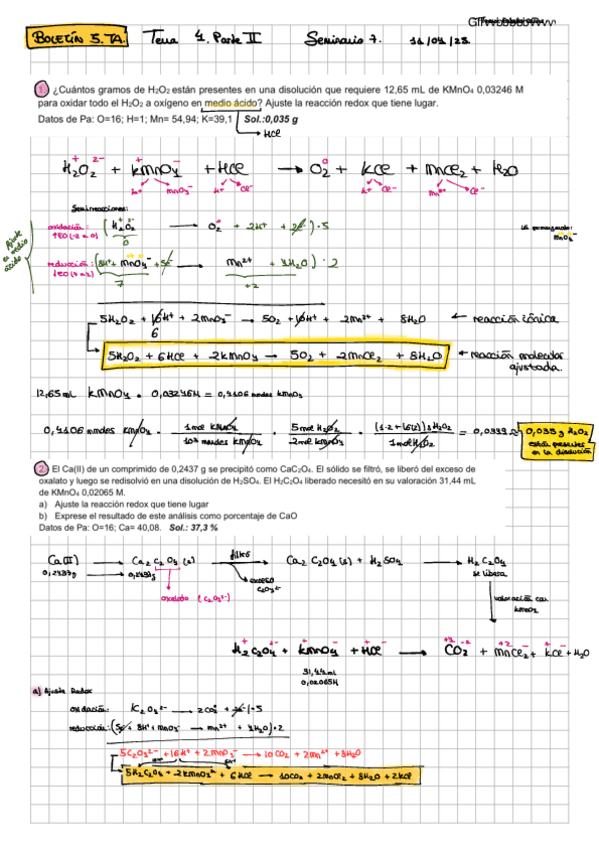 BOLETÍN 5.TA. Tema 4. Parte II Seminario 7.
1. ¿Cuántos gramos de H₂O₂ están presentes en una disolución que requiere 12,65 mL de KMnO₄ 0,03246 M
para oxidar todo el H₂O₂ a oxígeno en medio ácido? Ajuste la reacción redox que tiene lugar.
Datos de Pa: O=16; H=1; Mn= 54,94; K=39,1 Sol.:0,035 g
HCl
H₂O₂ + KMnO₄ + HCl → O₂ + KCl + MnCl₂ + H₂O
K⁺ MnO₄⁻ H⁺ Cl⁻ K⁺ Cl⁻ Mn²⁺ Cl⁻
Semirreacciones:
Ajuste en medio ácido
oxidación: (H₂O₂ → O₂ + 2H⁺ + 2e⁻)·5
reducción: (8H⁺ + MnO₄⁻ + 5e⁻ → Mn²⁺ + 4H₂O)·2
7 +2
5H₂O₂ + 16H⁺ + 2MnO₄⁻ → 5O₂ + 10H⁺ + 2Mn²⁺ + 8H₂O ← reacción iónica
6
5H₂O₂ + 6HCl + 2KMnO₄ → 5O₂ + 2MnCl₂ + 8H₂O ← reacción molecular ajustada.
12,65 mL KMnO₄ · 0,03246M = 0,4106 mmoles KMnO₄
0,4106 mmoles KMnO₄ · 1mol KMnO₄ / 10³ mmoles KMnO₄ · 5mol H₂O₂ / 2mol KMnO₄ · (1·2+16·2)g H₂O₂ / 1mol H₂O₂ = 0,0349 ≈ 0,035 g H₂O₂ están presentes en la disolución
2. El Ca(II) de un comprimido de 0,2437 g se precipitó como CaC₂O₄. El sólido se filtró, se liberó del exceso de
oxalato y luego se redisolvió en una disolución de H₂SO₄. El H₂C₂O₄ liberado necesitó en su valoración 31,44 mL
de KMnO₄ 0,02065 M.
a) Ajuste la reacción redox que tiene lugar
b) Exprese el resultado de este análisis como porcentaje de CaO
Datos de Pa: O=16; Ca= 40,08. Sol.: 37,3 %
Ca(II) → Ca₂C₂O₄(s) → filtró → Ca₂C₂O₄(s) + H₂SO₄ → H₂C₂O₄
0,2437g → 0,2437g exceso C₂O₄²⁻ se libera
oxalato (C₂O₄²⁻) valoración con KMnO₄
H₂C₂O₄ + KMnO₄ + HCl → CO₂ + MnCl₂ + KCl + H₂O
31,44mL
0,02065M
a) Ajuste Redox
oxidación: (C₂O₄²⁻ → 2CO₂ + 2e⁻)·5
reducción: (5e⁻ + 8H⁺ + MnO₄⁻ → Mn²⁺ + 4H₂O)·2
5C₂O₄²⁻ + 16H⁺ + 2MnO₄⁻ → 10CO₂ + 2Mn²⁺ + 8H₂O
5H₂C₂O₄ + 2KMnO₄ + 6HCl → 10CO₂ + 2MnCl₂ + 8H₂O + 2KCl